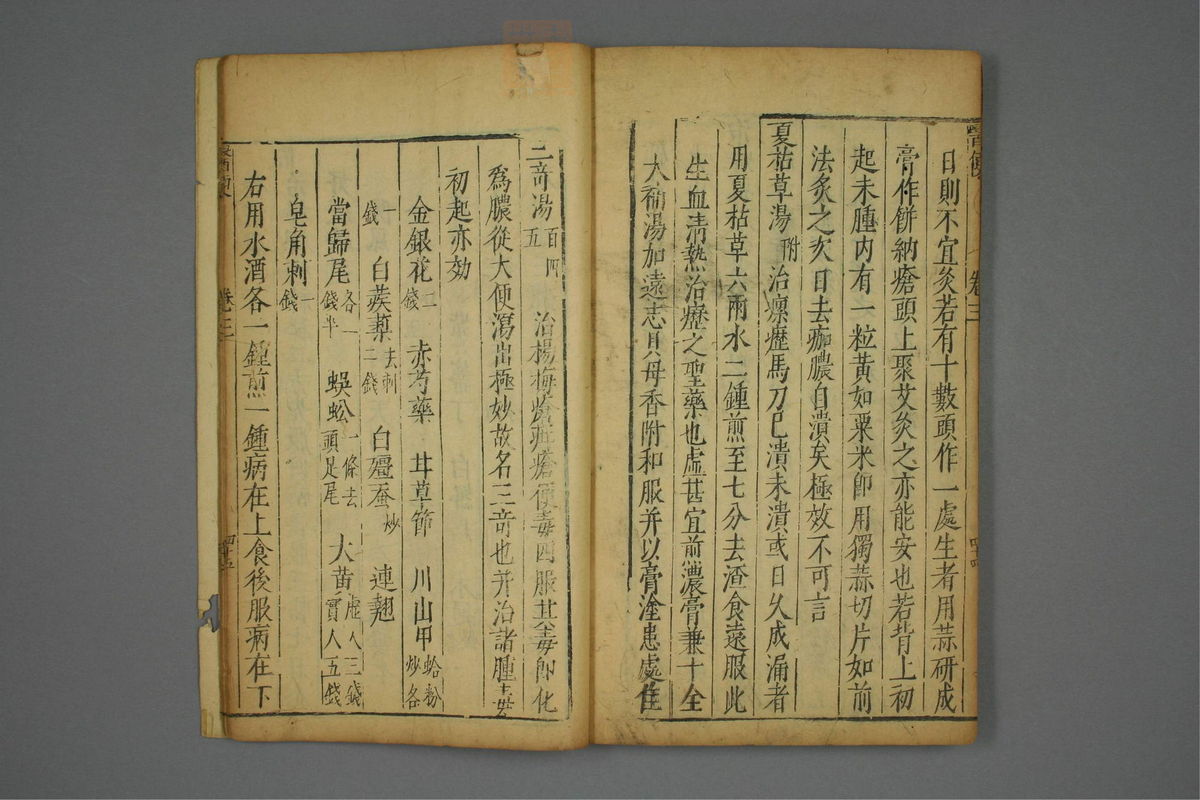 日則不宜灸若有十數頭作一處生者用蒜研成
膏作餅納瘡頭上聚艾灸之亦能安也若背上初
起未腫內有一粒黃如粟米卽用獨蒜切片如前
法灸之次日去痂膿自潰矣極效不可言
夏枯草湯 附 治瘰癧馬刀已潰未潰或日久成漏者
用夏枯草六兩水二鍾煎至七分去渣食遠服此
生血淸熱治癧之聖藥也虛甚宜煎濃膏兼十全
大補湯加遠志貝母香附和服并以膏塗患處佳
卷三
四十四
湯 百四五 治楊梅瘡疽瘡便毒四服其毒卽化
爲膿從大便瀉出極妙故名三奇也并治諸腫毒
初起亦効
金銀花 二錢 赤芍藥 甘草節 川山甲 蛤粉炒各
一錢 白蒺藜 去刺二錢 白殭蚕 炒 連翹
當歸尾 各一錢半 蜈蚣 一條去頭足尾 大黃 虛人三錢實人五錢
皂角刺 一錢
右用水酒各一鍾煎一鍾病在上食後服病在下
卷三
四十五